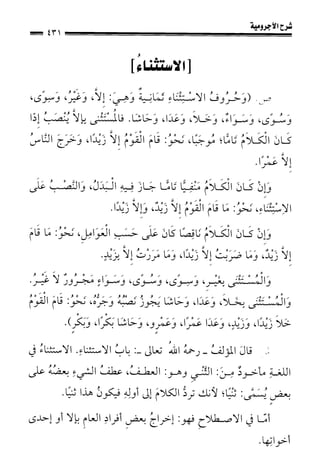 شرح الآجرومية
٤٣١
[الاستثناءُ]
ص. (وَحُرُوفُ الاسْتِثْنَاءِ ثَمَانِيةٌ وَهِيَ: إِلاَّ، وَغَيْرُ، وَسِوًى،
وَسُوًى، وَسَوَاءٌ، وَخَلاَ، وَعَدَا، وَحَاشَا. فَالْمُسْتَثْنَى بِإِلاَّ يُنْصَبُ إِذَا
كَانَ الْكَلاَمُ تَامًّا؛ مُوجَبًا، نَحْوُ: قَامَ الْقَوْمُ إِلاَّ زَيْدًا، وَخَرَجَ النَّاسُ
إِلاَّ عَمْرًا.
وَإِنْ كَانَ الْكَلاَمُ مَنْفِيًّا تَامًّا جَازَ فِيهِ الْبَدَلُ، وَالنَّصْبُ عَلَى
الاِسْتِثْنَاءِ، نَحْوُ: مَا قَامَ الْقَوْمُ إِلاَّ زَيْدٌ، وَإِلاَّ زَيْدًا.
وَإِنْ كَانَ الْكَلاَمُ نَاقِصًا كَانَ عَلَى حَسَبِ الْعَوَامِلِ، نَحْوُ: مَا قَامَ
إِلاَّ زَيْدٌ، وَمَا ضَرَبْتُ إِلاَّ زَيْدًا، وَمَا مَرَرْتُ إِلاَّ بِزَيْدٍ.
وَالْمُسْتَثْنَى بِغَيْرِ، وَسِوًى، وَسُوًى، وَسَوَاءٍ مَجْرُورٌ لاَ غَيْرُ.
وَالْمُسْتَثْنَى بِخَلاَ، وَعَدَا، وَحَاشَا يَجُوزُ نَصْبُهُ وَجَرُّهُ، نَحْوُ: قَامَ الْقَوْمُ
خَلاَ زَيْدًا، وَزَيْدٍ، وَعَدَا عَمْرًا، وَعَمْرٍو، وَحَاشَا بَكْرًا، وَبَكْرٍ).
قالَ المؤلفُ - رحمهُ اللهُ تعالى -: بابُ الاستثناءِ. الاستثناءُ في
اللغةِ مأخوذٌ مِنَ: الثَّنْيِ وهو: العطفُ، عطفُ الشيءِ بعضُهُ على
بعضٍ يُسَمَّى: ثَنْيًا؛ لأنك تردُّ الكلامَ إلى أولِهِ فيكونُ هذا ثَنْيًا.
أمّا في الاصطلاحِ فهو: إخراجُ بعضِ أفرادِ العامِ بإلا أو إحدى
أخواتِها.